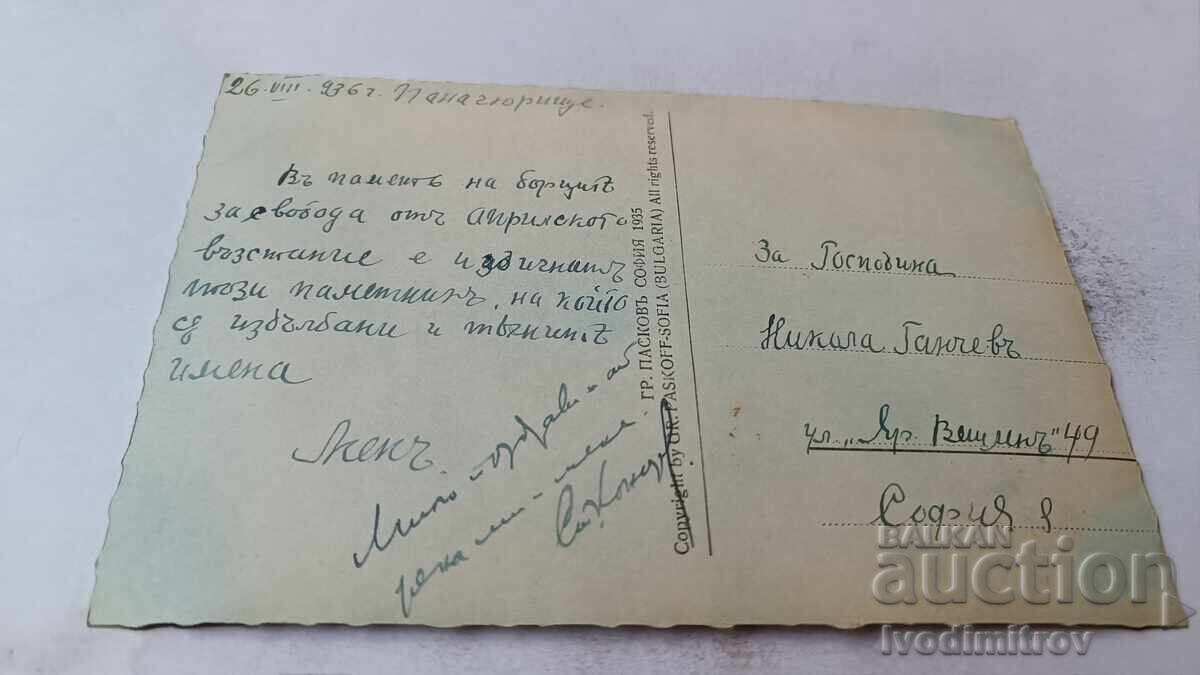 26.VIII.936 г. Панагюрище.
Въ паметь на борцитѣ
за свобода отъ априлското
възстание е издигнатъ
този паметникъ, на който
сѫ издълбани и тѣхнитѣ
имена
Женъ.
Много поздрави и от
мене
ГР. ПАСКОВЪ СОФИЯ 1935
Copyright by GR. PASKOFF-SOFIA (BULGARIA) All rights reserved.
За Господина
Никола Ганчевъ
ул. „Яр. Вешинъ" 49
София
BALKAN
auction
Ivodimitrov